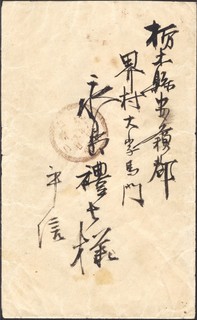 栃木縣安蘇郡
界村大字馬門
永島禮七様
平信